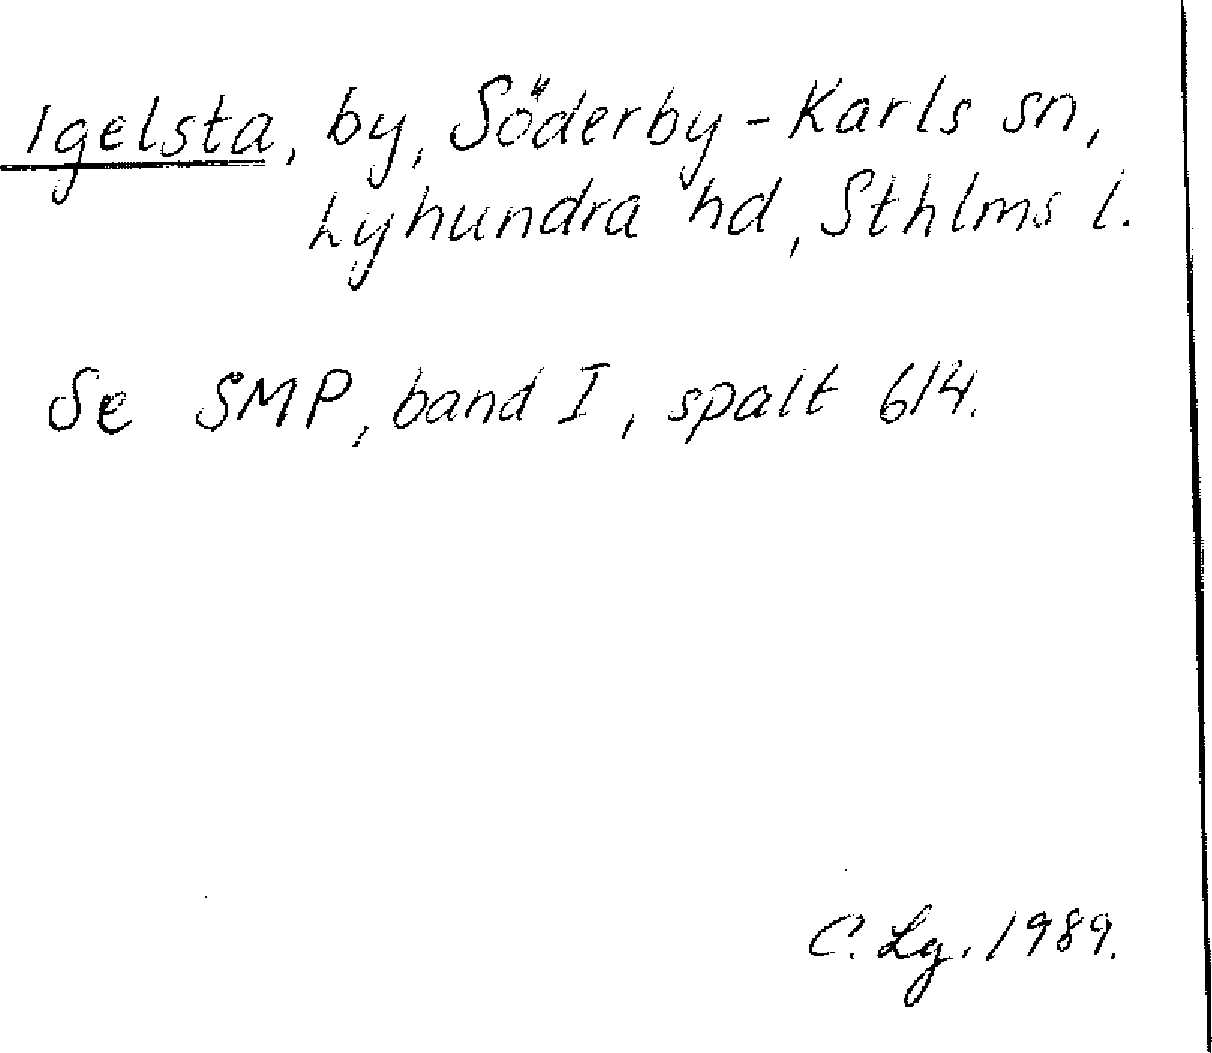 Igelsta, by, Söderby-Karls sn,
Lyhundra hd, Sthlms l.
Se SMP, band I, spalt 614.
C. Lg. 1989.